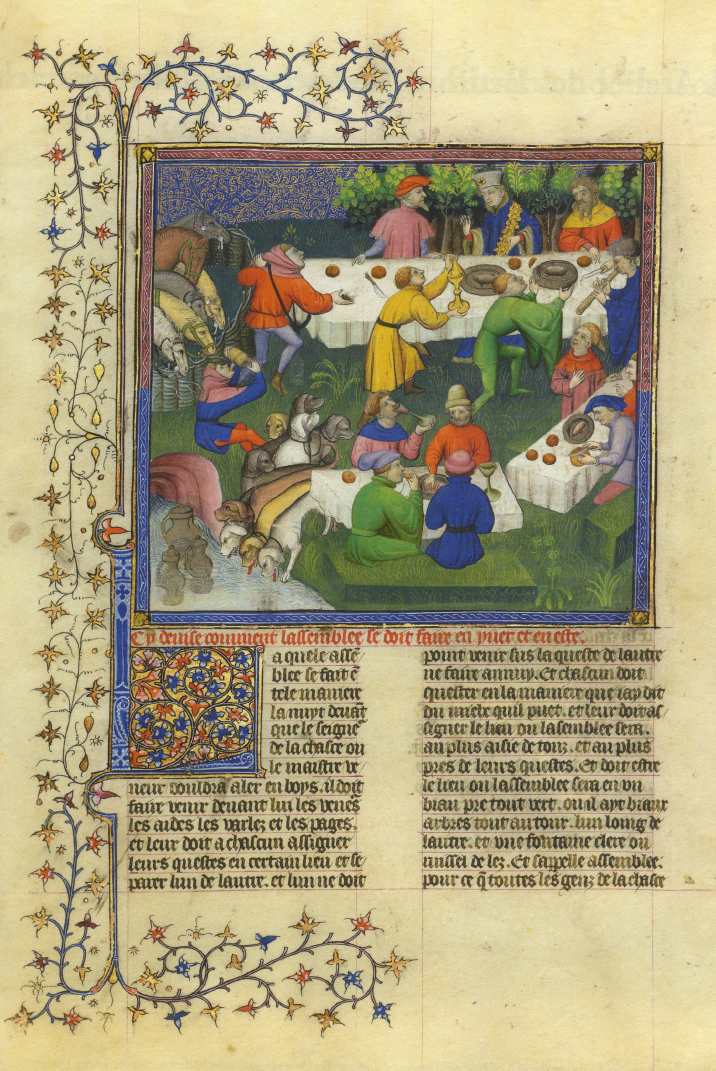 Cy deuise comment lassemblee se doit faire en yuer et en este.
a quele assē
blee se fait ē
tele maniere
la nuyt deuāt
que le seigne
de la chasce ou
le maistre ve
neur vouldra aler en boys. il doit
faire venir deuant lui les venes
les aides les varlez et les pages.
et leur doit a chascun assigner
leurs questes en certain lieu et se
parer lun de lautre. et lun ne doit
point venir sus la queste de lautre
ne faire annuy. Et chascun doit
quester en la maniere que iay dit
du mielx quil puet. et leur doit as
signer le lieu ou lasemblee sera.
au plus aisie de touz. et au plus
pres de leurs questes. Et doit estre
le lieu ou lassemblee sera en vn
biau pre tout vert. ou il ayt biaux
arbres tout au tour. lun loing de
lautre. et vne fontayne clere ou
ruissel de lez. Et sappelle assemblee.
pour ce q̄ toutes les genz de la chasce